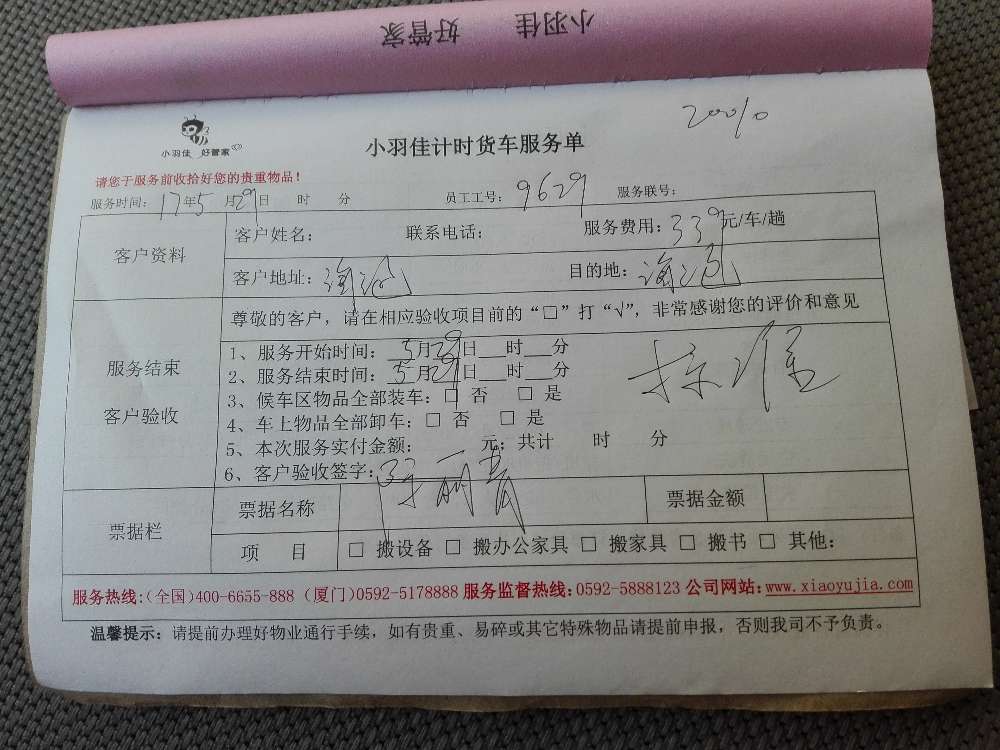 小羽佳 好管家
200%
小羽佳 好管家
小羽佳计时货车服务单
请您于服务前收拾好您的贵重物品！
服务时间：17年5月29日 时 分 员工工号：9629 服务联号：
客户资料
客户姓名： 联系电话： 服务费用：339元/车/趟
客户地址：海沧 目的地：海沧
服务结束
客户验收
尊敬的客户，请在相应验收项目前的“□”打“√”，非常感谢您的评价和意见
1、服务开始时间：5月29日___时___分
2、服务结束时间：5月29日___时___分
标准
3、候车区物品全部装车：□ 否 □ 是
4、车上物品全部卸车：□ 否 □ 是
5、本次服务实付金额： 元；共计 时 分
6、客户验收签字：
票据栏
票据名称 票据金额
项 目 □ 搬设备 □ 搬办公家具 □ 搬家具 □ 搬书 □ 其他：
服务热线：（全国）400-6655-888 （厦门）0592-5178888 服务监督热线：0592-5888123 公司网站：www.xiaoyujia.com
温馨提示：请提前办理好物业通行手续，如有贵重、易碎或其它特殊物品请提前申报，否则我司不予负责。